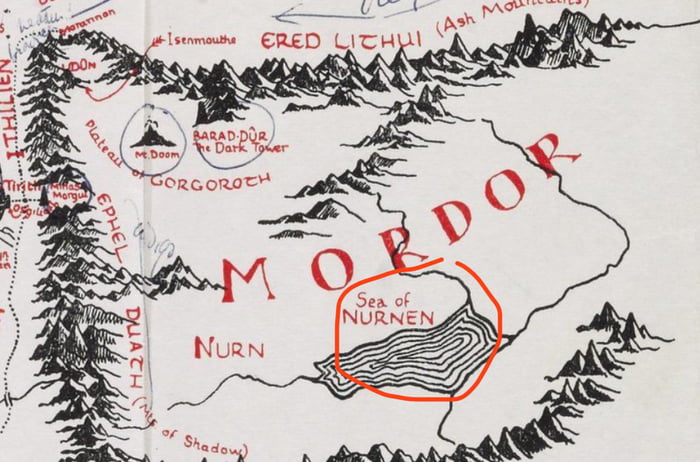 Morannon
Isenmouthe
ERED LITHUI (Ash Mountains)
UDÛN
ITHILIEN
Mt. Doom
BARAD-DÛR
The Dark Tower
Plateau of GORGOROTH
Minas
Morgul
EPHEL DUATH (Mts of Shadow)
MORDOR
Sea of
NURNEN
NURN